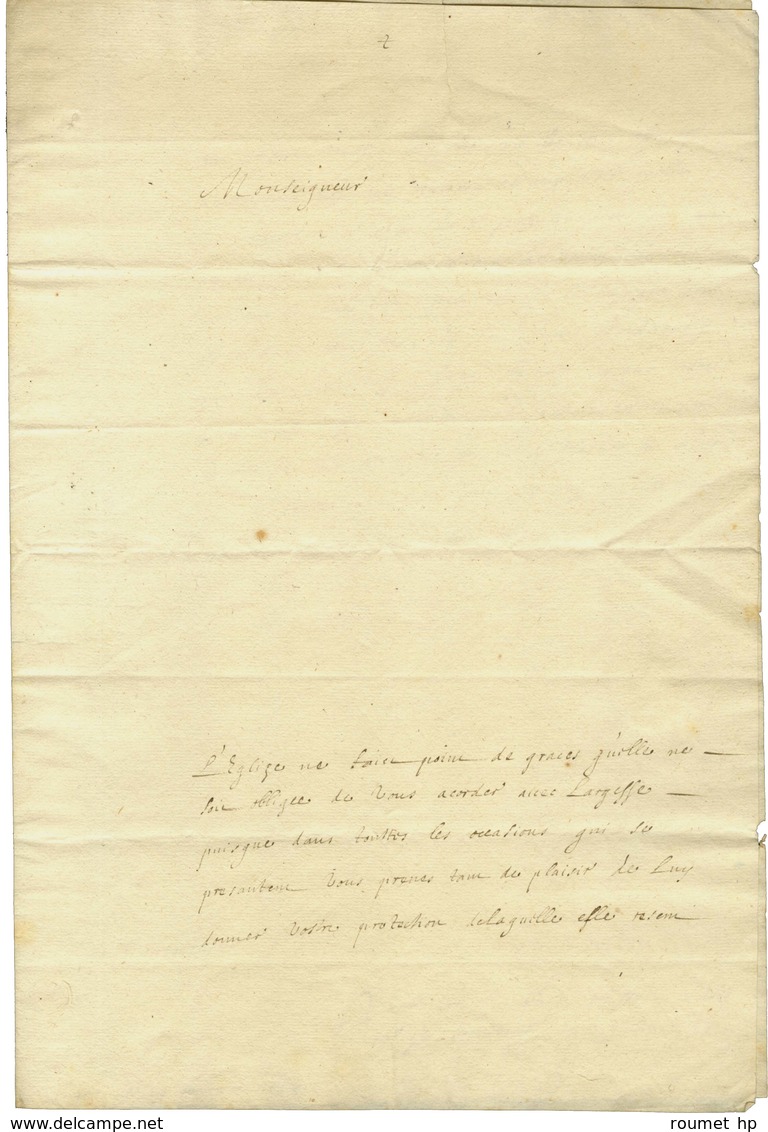 2
Monseigneur
L'Eglize ne faict point de graces qu'elle ne
soit obligee de vous acorder avec Largesse
puisque dans touttes les occasions qui se
presantent vous prenes tant de plaisir de Luy
donner vostre protection de laquelle elle resent
delcampe.net
roumet hp